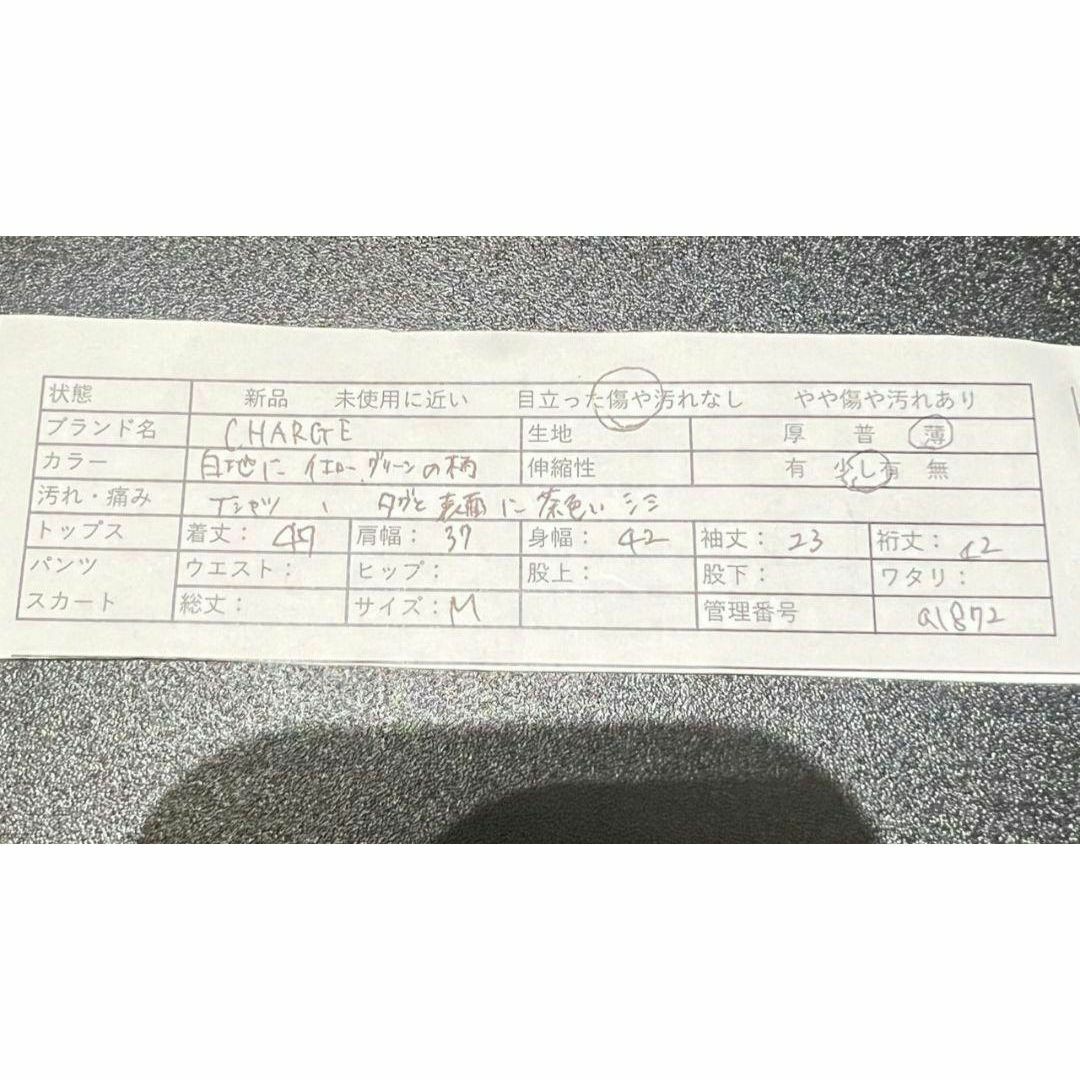 状態 新品 未使用に近い 目立った傷や汚れなし やや傷や汚れあり
ブランド名 CHARGE 生地 厚 普 薄
カラー 白地に イエロー、グリーンの柄 伸縮性 有 少し有 無
汚れ・痛み Tシャツ、タグと表面に茶色いシミ
トップス 着丈： 49 肩幅： 37 身幅： 42 袖丈： 23 裄丈： 42
パンツ ウエスト： ヒップ： 股上： 股下： ワタリ：
スカート 総丈： サイズ：M 管理番号 a1872